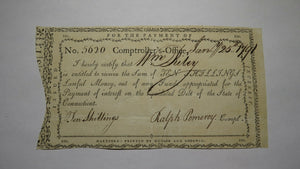 FOR THE PAYMENT OF
No. 5620 Comptroller's-Office,
I hereby certify that Wm
is entitled to receive the Sum of TEN SHILLINGS
Lawful Money, out of any Funds appropriated for the
Payment of interest on the Debt of the State of
Connecticut.
Ten Shillings Ralph Pomeroy Compt.
HARTFORD: PRINTED BY HUDSON AND GOODWIN.